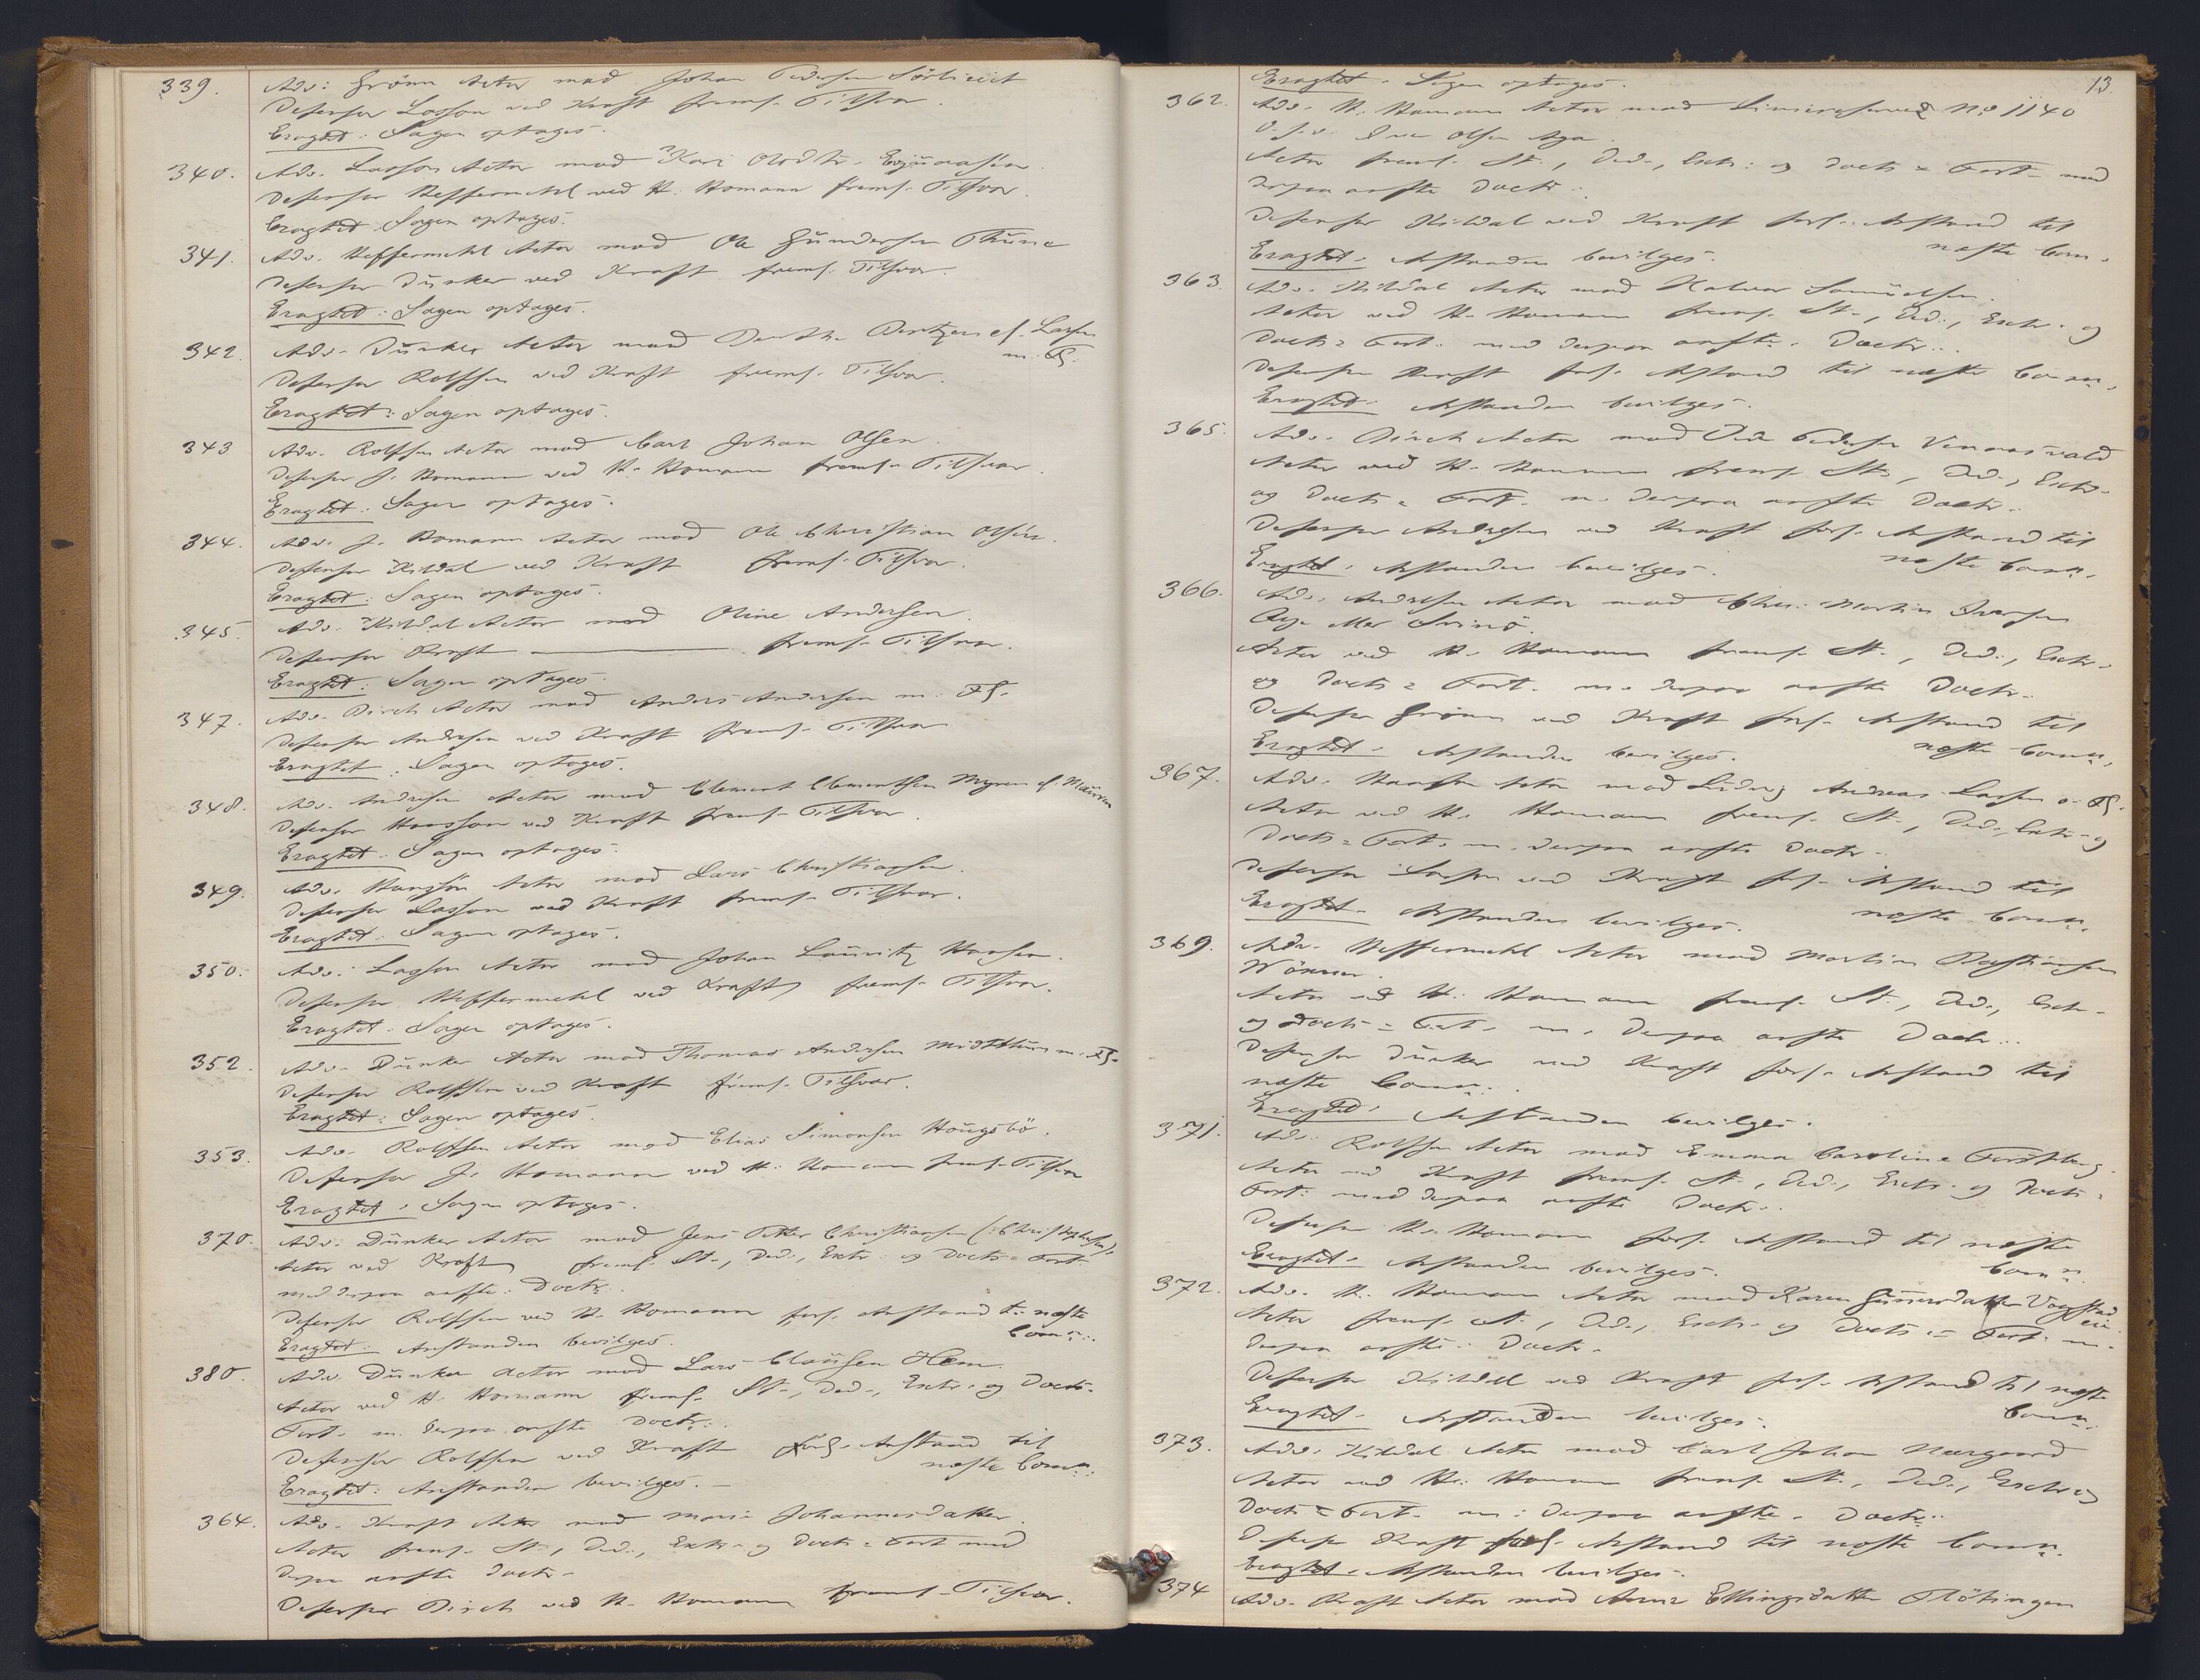 339. Adv: Grönn Actor mod Johan Pedersen
Defensor Lasson ved Kraft frems. Tilsvar.
Eragtet: Sagen optages.
340. Adv. Lasson Actor mod Kari Olsdtr.
Defensor Heffermehl ved H. Homann frems. Tilsvar.
Eragtet: Sagen optages.
341. Adv. Heffermehl Actor mod Ole Gundersen Thune
Defensor Dunker ved Kraft frems. Tilsvar.
Eragtet: Sagen optages.
342. Adv. Dunker Actor mod Berntzen ell. Larsen
m. Fl.
Defensor Rolfsen ved Kraft frems. Tilsvar.
Eragtet: Sagen optages.
343 Adv. Rolfsen Actor mod Carl Johan Olsen.
Defensor J. Homann ved H. Homann frems. Tilsvar.
Eragtet: Sagen optages.
344. Adv. J. Homann Actor mod Ole Christian Olsen.
Defensor Kildal ved Kraft frems. Tilsvar.
Eragtet: Sagen optages.
345. Adv. Kildal Actor mod Oline Andersen.
Defensor Kraft frems. Tilsvar.
Eragtet: Sagen optages.
347. Adv. Birch Actor mod Anders Andersen m. Fl.
Defensor Andresen ved Kraft frems. Tilsvar
Eragtet: Sagen optages.
348. Adv. Andresen Actor mod Clement Clementsen Myren ell.
Defensor Hansson ved Kraft frems. Tilsvar.
Eragtet: Sagen optages.
349. Adv. Hansson Actor mod Lars Christiansen.
Defensor Lasson ved Kraft frems. Tilsvar.
Eragtet: Sagen optages.
350. Adv: Lasson Actor mod Johan Lauritz Hansen.
Defensor Heffermehl ved Kraft frems. Tilsvar.
Eragtet: Sagen optages.
352. Adv. Dunker Actor mod Thomas Andersen Midtthun m. Fl.
Defensor Rolfsen ved Kraft frems. Tilsvar.
Eragtet: Sagen optages.
353. Adv. Rolfsen Actor mod Elias Simonsen Hougsbö.
Defensor J. Homann ved H. Homann frems. Tilsvar
Eragtet: Sagen optages.
370. Adv. Dunker Actor mod Jens Petter Christiansen (:Christophersen:).
Actor ved Kraft frems. St., Ded., Extr. og Docts = Fort.
med derpaa anførte Doctr.
Defensor Rolfsen ved H. Homann forl. Anstand til næste
Conn.
Eragtet: Anstanden bevilges.
380. Adv. Dunker Actor mod Lars Clausen Hem.
Actor ved H. Homann frems. St., Ded., Extr. og Docts.
Fort. m. derpaa anførte Doctr.
Defensor Rolfsen ved Kraft forl. Anstand til
næste Conn.
Eragtet: Anstanden bevilges.
364. Adv. Kraft Actor mod Marie Johannesdatter.
Actor frems. St., Ded., Extr. og Docts = Fort med
derpaa anførte Doctr.
Defensor Birch ved H. Homann frems. Tilsvar.
13.
Eragtet. Sagen optages.
362. Adv. H. Homann Actor mod No 1140
Iver Olsen Aga.
Actor frems. St., Ded., Extr: og Docts = Fort. med
derpaa anførte Doctr.
Defensor Kildal ved Kraft forl. Anstand til
næste Conn.
Eragtet. Anstanden bevilges.
363. Adv. Kildal Actor mod Halvor Samuelsen.
Actor ved H. Homann frems. St., Ded., Extr. og
Docts = Fort. med derpaa anførte Doctr.
Defensor Kraft forl. Anstand til næste Conn.
Eragtet. Anstanden bevilges.
365. Adv. Birch Actor mod Pedersen
Actor ved H. Homann frems. St., Ded., Extr.
og Docts = Fort. m. derpaa anførte Doctr.
Defensor Andresen ved Kraft forl. Anstand til
næste Conn.
Eragtet. Anstanden bevilges.
366. Adv. Andresen Actor mod Chr. Martin Iversen
eller
Actor ved H. Homann frems. St., Ded., Extr.
og Docts = Fort. m. derpaa anførte Doctr.
Defensor Grönn ved Kraft forl. Anstand til
næste Conn.
Eragtet. Anstanden bevilges.
367. Adv. Hansson Actor mod Ludvig Andreas Larsen o. Fl.
Actor ved H. Homann frems. St., Ded., Extr. og
Docts = Fort. m. derpaa anførte Doctr.
Defensor Lasson ved Kraft forl. Anstand til
næste Conn.
Eragtet. Anstanden bevilges.
369. Adv. Heffermehl Actor mod Martin Bastiansen
Actor ved H. Homann frems. St., Ded., Extr.
og Docts = Fort. m. derpaa anførte Doctr.
Defensor Dunker ved Kraft forl. Anstand til
næste Conn.
Eragtet. Anstanden bevilges.
371. Adv. Rolfsen Actor mod Emma Caroline
Actor ved Kraft frems. St., Ded., Extr. og Docts =
Fort: med derpaa anførte Doctr.
Defensor H. Homann forl. Anstand til næste
Conn.
Eragtet. Anstanden bevilges.
372. Adv. H. Homann Actor mod Karen Gunersdatter
Actor frems. St., Ded., Extr. og Docts = Fort. m.
derpaa anførte Doctr.
Defensor Kildal ved Kraft forl. Anstand til næste
Conn.
Eragtet. Anstanden bevilges.
373. Adv. Kildal Actor mod Carl Johan Neergaard
Actor ved H. Homann frems. St., Ded., Extr. og
Docts = Fort. m: derpaa anførte Doctr.
Defensor Kraft forl. Anstand til næste Conn.
Eragtet. Anstanden bevilges.
374 Adv. Kraft Actor mod Anne Ellingsdatter